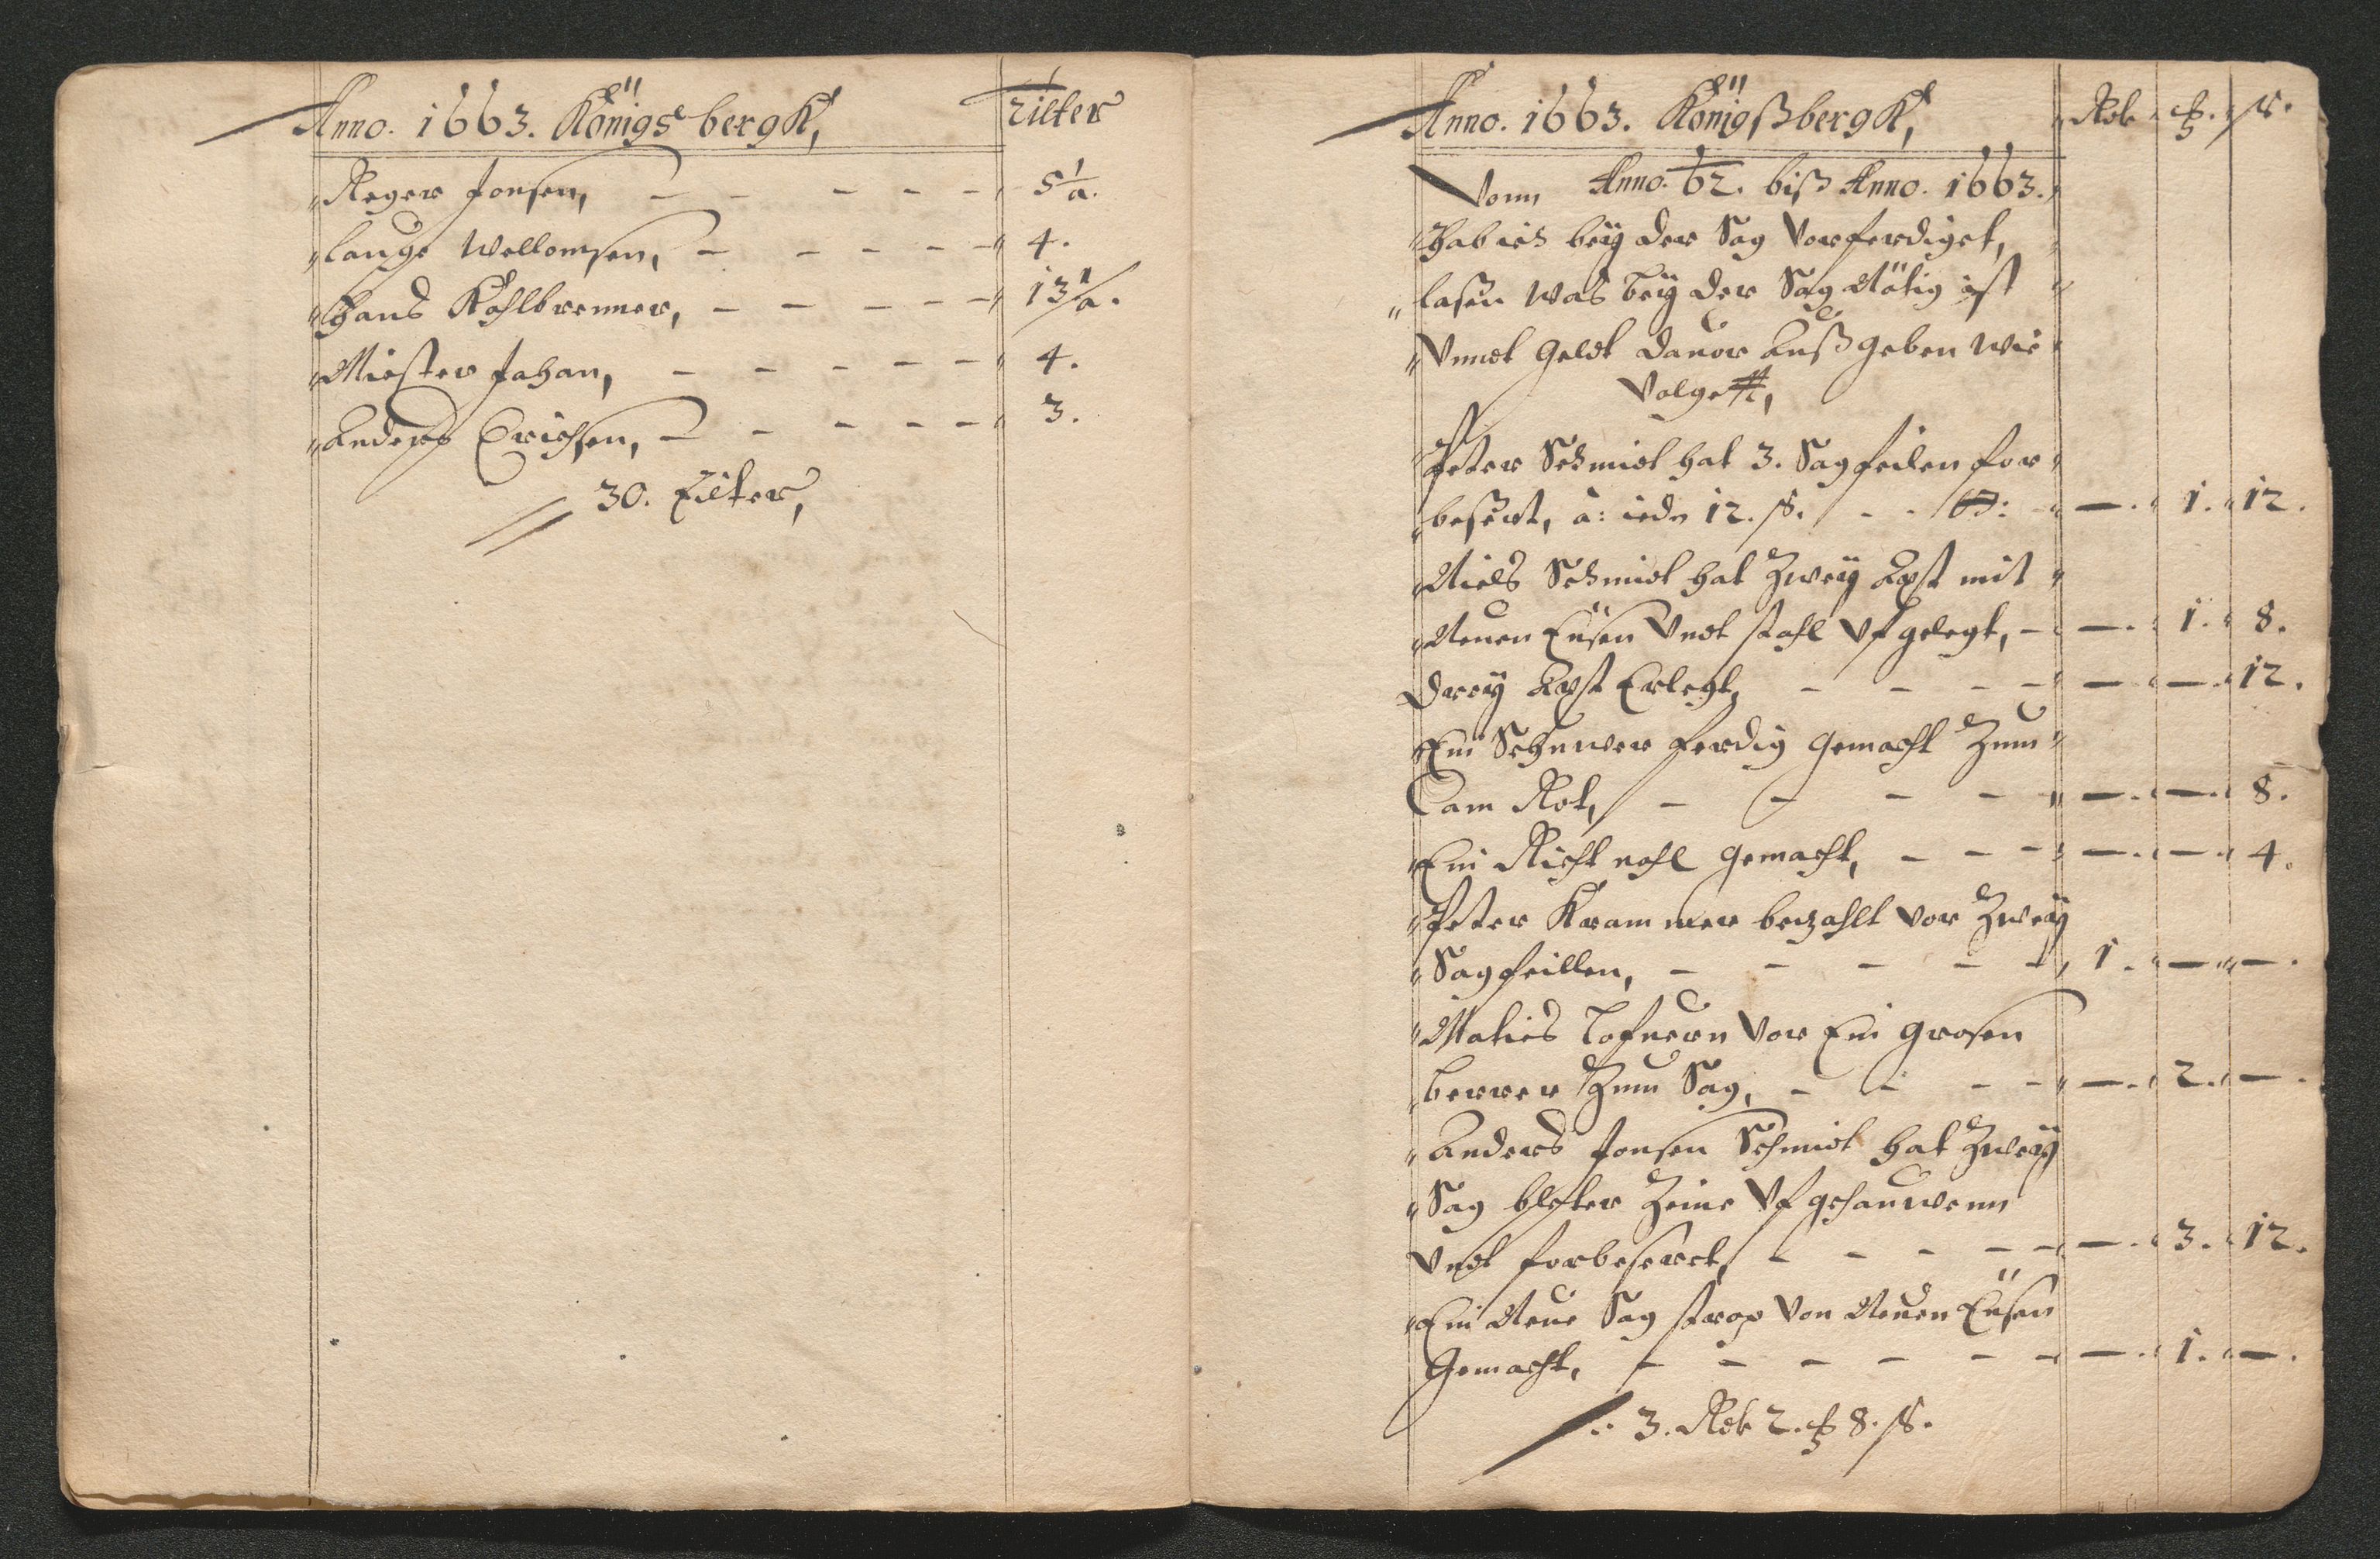 Anno. 1663. Königsbergk,
zilter
Reger Jonsen, - - - - - 5 1/2.
lange Wellomsen, - - - - 4.
Hans Kohlbrenner, - - - - - 13 1/2.
Miester Johan, - - - - - 4.
Anders Erichsen, - - - - - 3.
30. Zilter,
Anno. 1663. Königßbergk,
Rdt ß.
Vonn Anno. 62. biß Anno. 1663.
Hab ich beÿ der Sag Vorferdiget,
lasen Was beÿ der Sag Nötig ist
Vnndt Geldt dauor Außgeben wie
Volgett,
Peter Schmidt hat 3. Sagfeilen for
besert, à: iede 12. ß. - - - —. 1. 12.
Niels Schmidt hat Zweÿ Axst mit
Neuen Eüsen Vndt stahl Vf gelegt, - —. 1. 8.
Dreÿ Axst Erlegt, - - - - — —. 12.
Ein Schuwer ferdig gemacht Zum
Cam Rot, - - - - —. —. 8.
Ein Richt nahl gemacht, - - - —. —. 4.
Peter Krammer bezahlt vor Zweÿ
Sagfeillen, - - - - - 1. — —.
Maties Vor Ein grosen
berrer Zum Sag, - - - - —. 2. —.
Anders Jonsen Schmidt hat Zweÿ
Sag bletter Zeine Vf gehauwenn
Vndt forbesert, - - - - - —. 3. 12.
Ein Neue Sag Von Neuen Eüsen
Gemacht, - - - - - - —. 1. —.
3. Rdt 2. 8. ß.